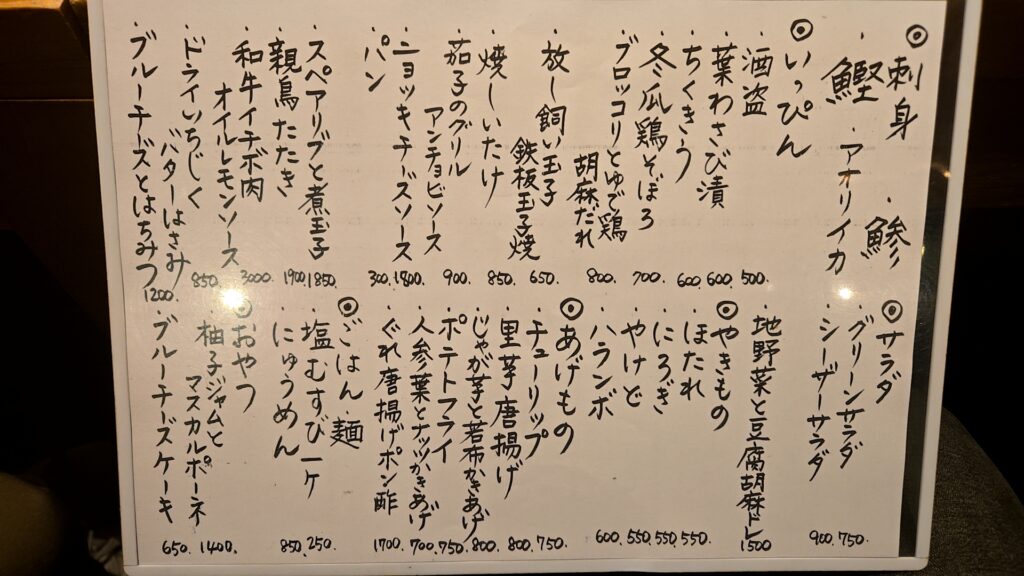 ◎刺身
・鰹 ・アオリイカ ・鯵
◎いっぴん
・酒盗 500.
・葉わさび漬 600.
・ちくきう 600.
・冬瓜鶏そぼろ 700.
・ブロッコリとゆで鶏
胡麻だれ 800.
・放し飼い玉子
鉄板玉子焼 650.
・焼しいたけ 850.
・茄子のグリル
アンチョビソース 900.
・ニョッキチーズソース 1800.
・パン 300.
・スペアリブと煮玉子 1850.
・親鳥たたき 1900.
・和牛イチボ肉
オイルレモンソース 3000.
・ドライいちじく
バターはさみ 850.
・ブルーチーズとはちみつ 1200.
◎サラダ
・グリーンサラダ 750.
・シーザーサラダ 900.
・地野菜と豆腐胡麻ドレ 1500
◎やきもの
・ほたれ 550.
・にろぎ 550.
・やけど 550.
・ハランボ 600.
◎あげもの
・チューリップ 750.
・里芋唐揚げ 800.
・じゃが芋と若布かきあげ 800.
・ポテトフライ 750.
・人参葉とナッツかきあげ 700.
・ぐれ唐揚げポン酢 1700.
◎ごはん 麺
・塩むすび一ケ 250.
・にゅうめん 850.
◎おやつ
・柚子ジャムと
マスカルポーネ 1400.
・ブルーチーズケーキ 650.